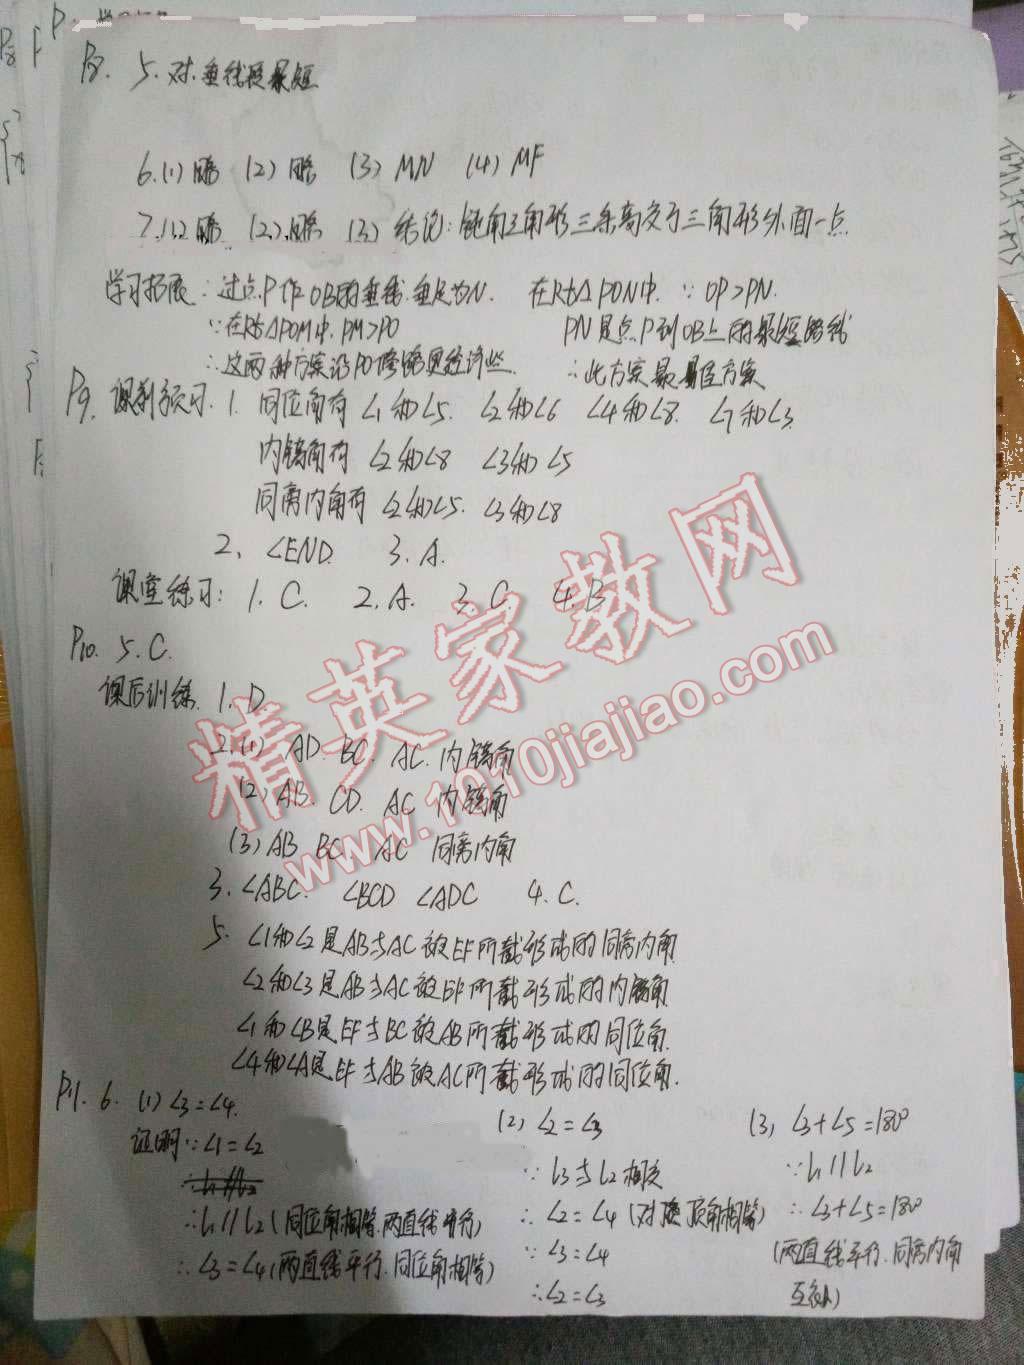 P8. 5. 对. 垂线段最短
6. (1) 略 (2) 略 (3) MN (4) MF
7. (1) 略 (2) 略 (3) 结论: 钝角三角形三条高交于三角形外面一点.
学习拓展: 过点P作OB的垂线. 垂足为N. 在Rt△PON中. ∵ OP>PN.
∵在Rt△POM中. PM>PO PN是点P到OB上的最短路线
∴这两种方案沿PO修路更经济些. ∴此方案是最佳方案
P9. 课前预习. 1. 同位角有 ∠1和∠5. ∠2和∠6 ∠4和∠8. ∠7和∠3.
内错角有 ∠2和∠8 ∠3和∠5
同旁内角有 ∠2和∠5. ∠3和∠8
2. ∠END. 3. A.
课堂练习: 1. C. 2. A. 3. C 4. B
P10. 5. C.
课后训练. 1. D
2. (1) AD. BC. AC. 内错角
(2) AB. CD. AC 内错角
(3) AB BC AC 同旁内角
3. ∠ABC. ∠BCD ∠ADC 4. C.
5. ∠1和∠2是AB与AC被EF所截形成的同旁内角.
∠2和∠3是AB与AC被EF所截形成的内错角.
∠1和∠B是EF与BC被AB所截形成的同位角.
∠4和∠A是EF与AB被AC所截形成的同位角.
P11. 6. (1) ∠3=∠4. (2) ∠2=∠3 (3) ∠3+∠5=180°
证明 ∵∠1=∠2 ∵ l3与l2相交 ∵ l1//l2
∴l1//l2
∴l1//l2 (同位角相等. 两直线平行) ∴ ∠2=∠4 (对顶角相等) ∴ ∠3+∠5=180°
∴ ∠3=∠4 (两直线平行. 同位角相等) ∵ ∠3=∠4 (两直线平行. 同旁内角
∴∠2=∠3 互补)
精英家教网
www.1010jiajiao.com